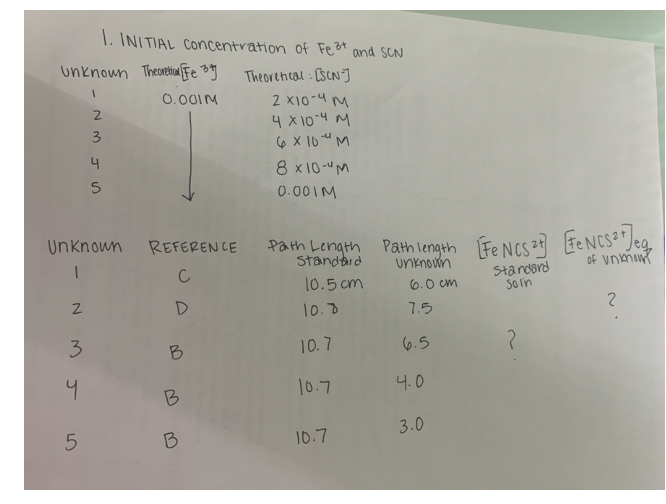 1. INITIAL concentration of Fe³⁺ and SCN
Unknown Theoretical [Fe ³⁺] Theoretical : [SCN⁻]
1 0.001M 2 x10⁻⁴ M
2 4 x10⁻⁴ M
3 6 x 10⁻⁴ M
4 8 x10⁻⁴ M
5 0.001M
Unknown REFERENCE Path Length Standard Path length unknown [FeNCS²⁺] Standard soln [FeNCS²⁺]eq of unknown
1 C 10.5cm 6.0 cm
2 D 10.8 7.5 ?
3 B 10.7 6.5 ?
4 B 10.7 4.0
5 B 10.7 3.0